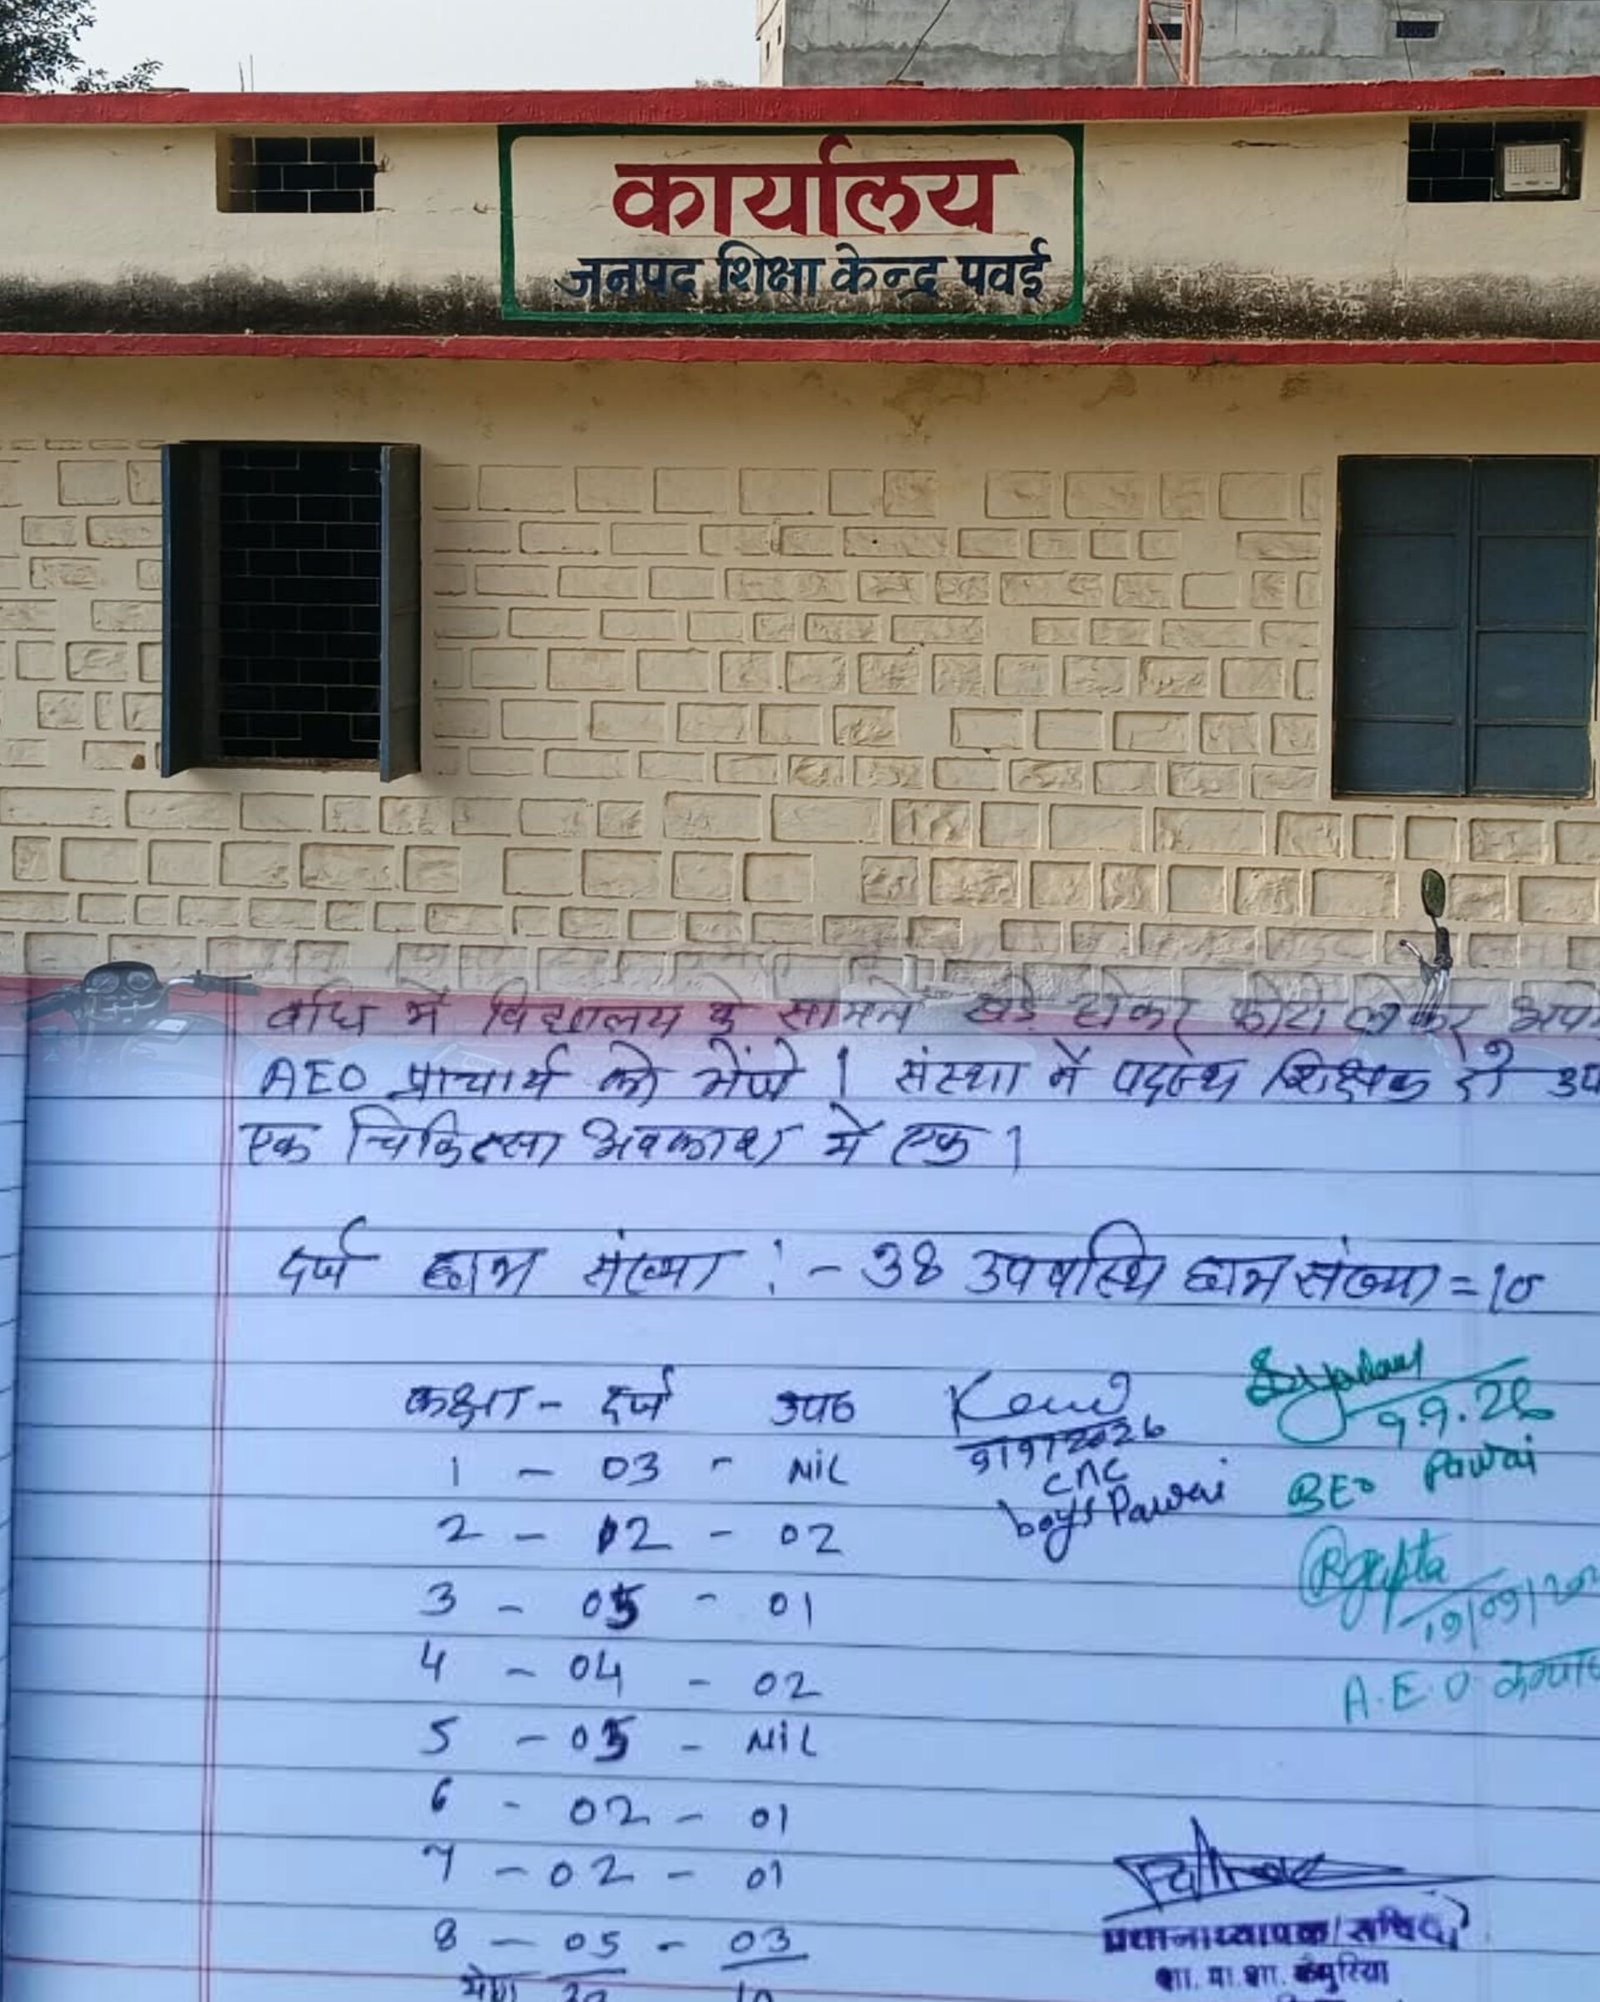 कार्यालय
जनपद शिक्षा केन्द्र पवई
में विद्यालय के सामने खड़े होकर फोटो लेकर
AEO प्राचार्य को भेंजे । संस्था में पदस्थ शिक्षक दो
एक चिकित्सा अवकाश में एक ।
दर्ज छात्र संख्या :- 38 उपस्थि छात्र संख्या = 10
कक्षा - दर्ज उपठ
1 - 03 - NiL
2 - 12 - 02
3 - 05 - 01
4 - 04 - 02
5 - 05 - NiL
6 - 02 - 01
7 - 02 - 01
8 - 05 - 03
9/9/2026
CAC
boys Pawai
9.9.26
BEO Pawai
Rgupta
A.E.O.
प्रधानाध्यापक/सचिव
शा. मा. शा.